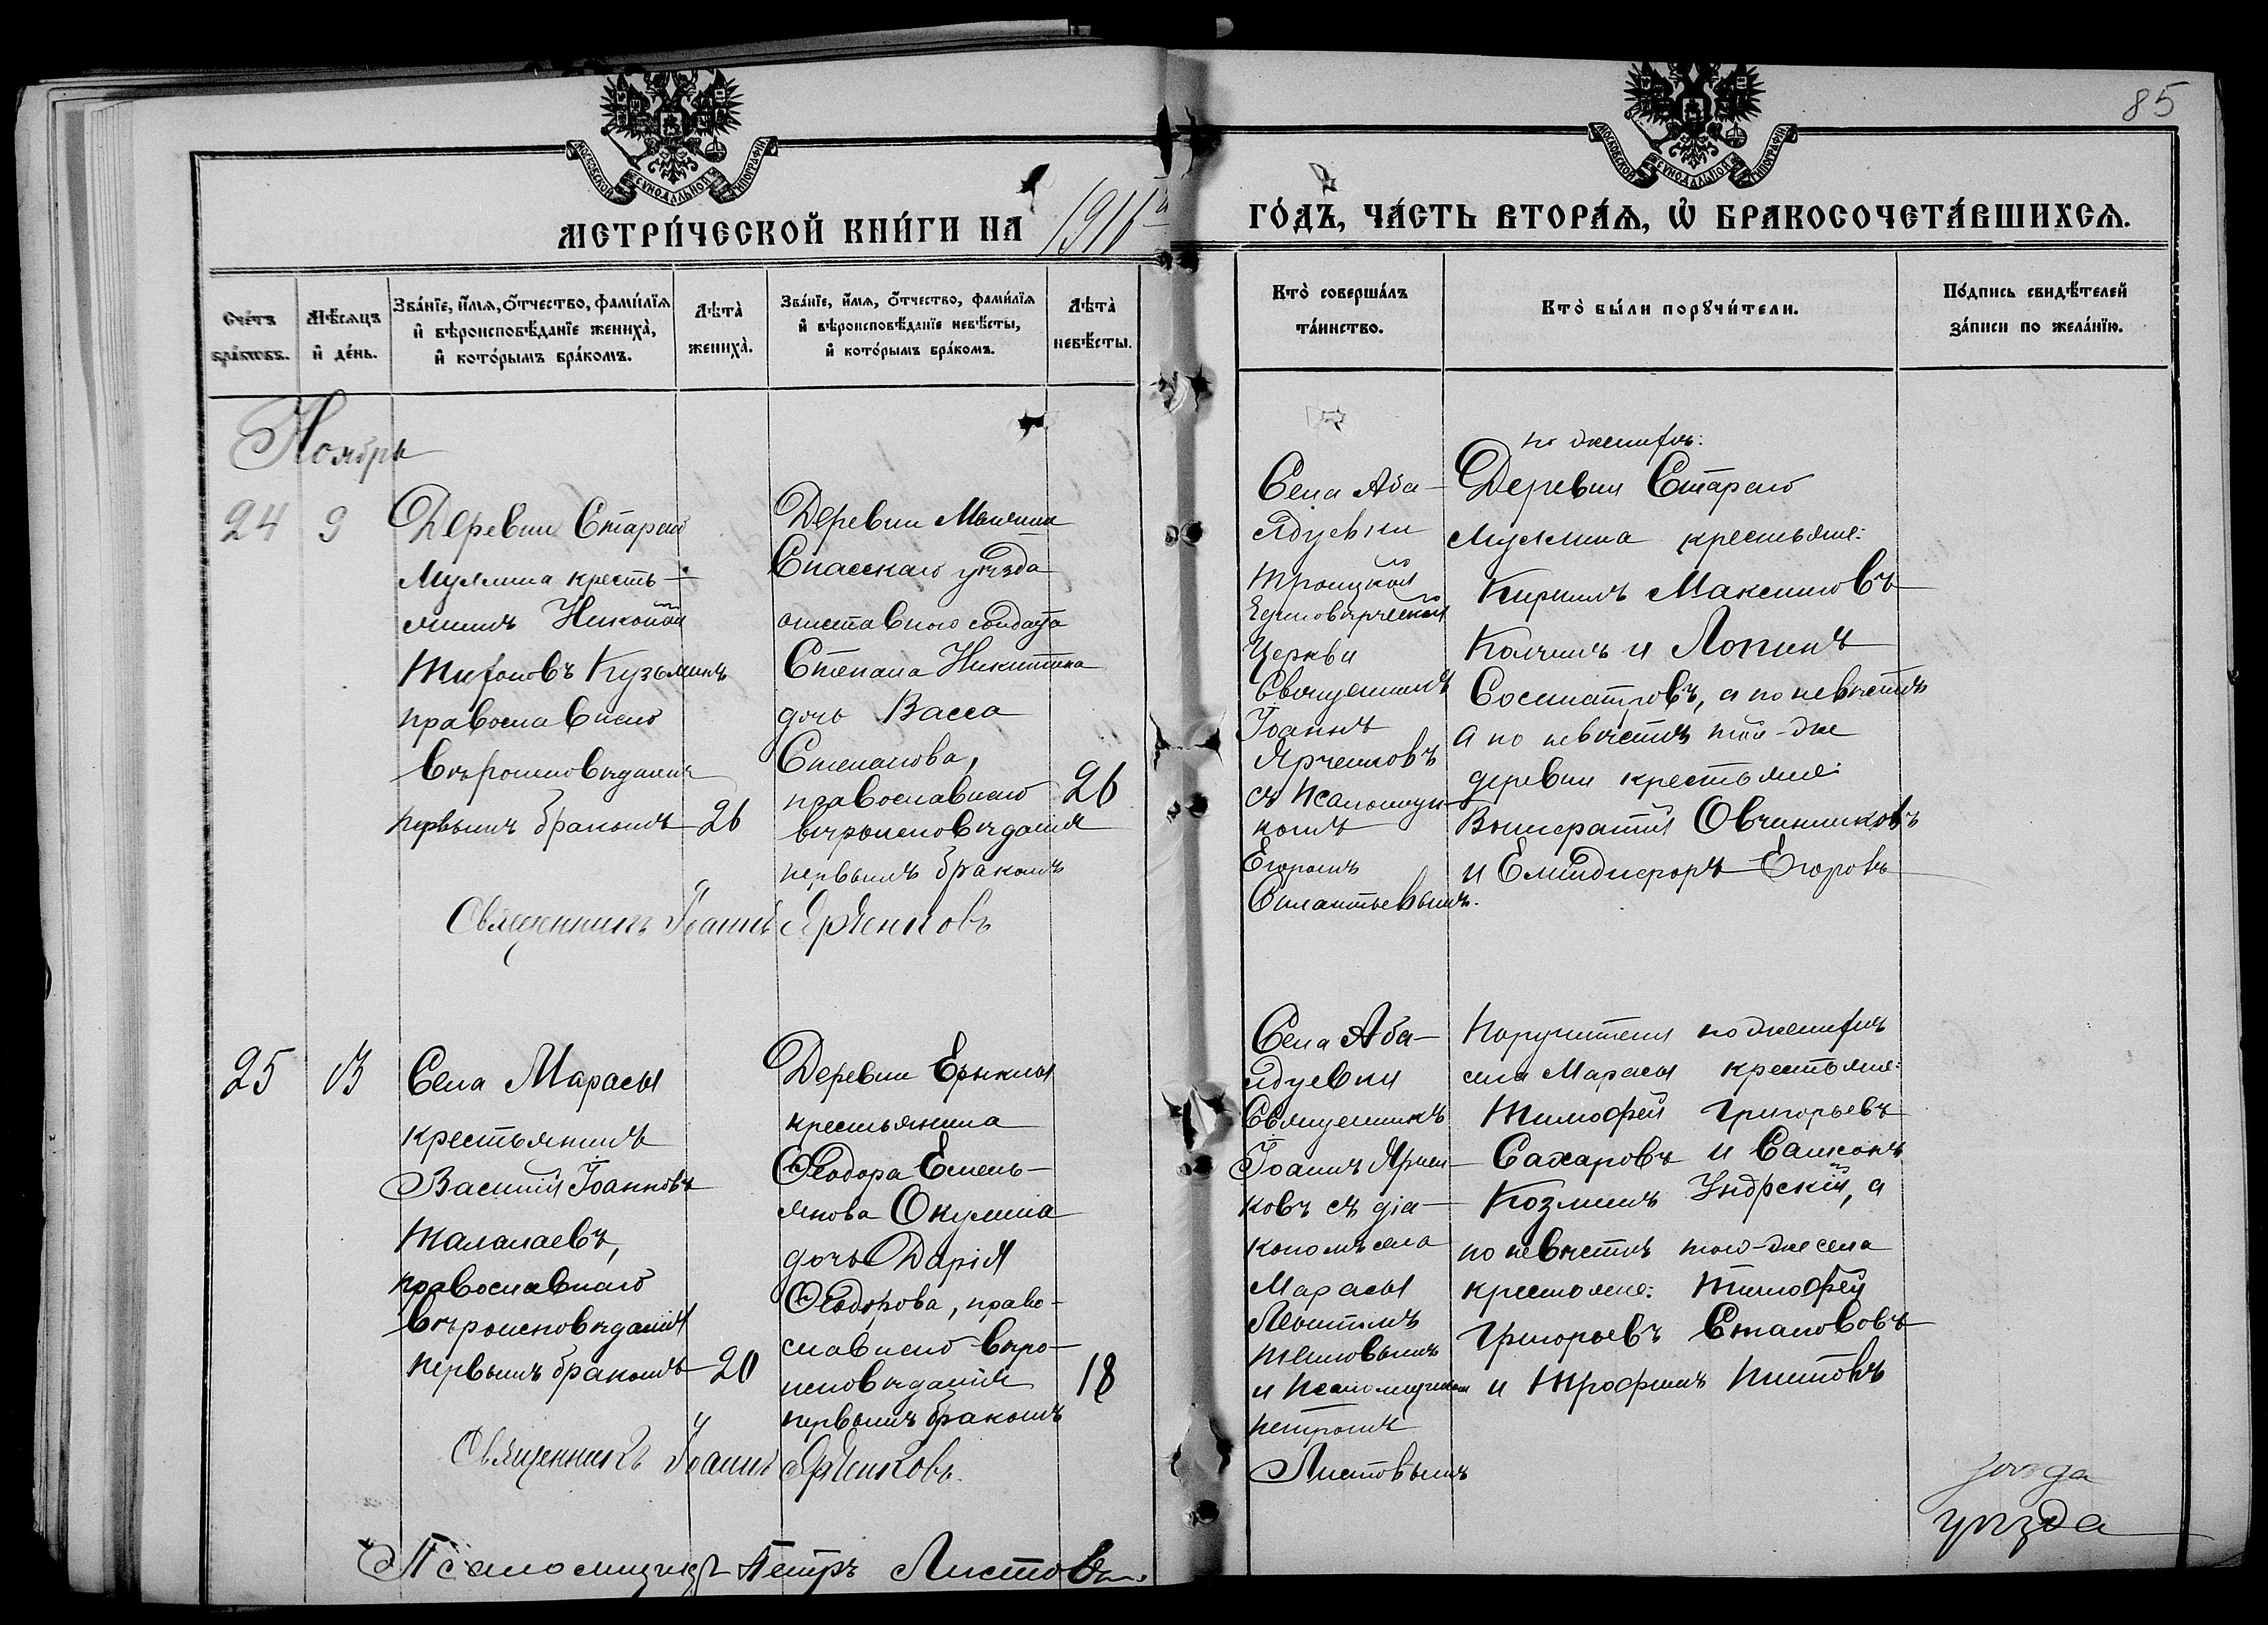 85
МОСКОВСКОЙ СѴНОДАЛЬНОЙ ТИПОГРАФІИ
МОСКОВСКОЙ СѴНОДАЛЬНОЙ ТИПОГРАФІИ
МЕТРИ́ЧЕСКОЙ КНИ́ГИ НА
ГО́ДЪ, ЧА́СТЬ ВТОРА́Я, Ѡ҆ БРАКОСОЧЕТА́ВШИХСЯ.
Сче́тъ бра́ковъ.
Мѣ́сяцъ и҆ де́нь.
Зва́нїе, и҆́мя, ѻ҆́тчество, фами́лїя
и҆ вѣроисповѣ́данїе жениха̀,
и҆ кото́рымъ бра́комъ.
Лѣ́та̀
жениха̀.
Зва́нїе, и҆́мя, ѻ҆́тчество, фами́лїя
и҆ вѣроисповѣ́данїе невѣ́сты,
и҆ кото́рымъ бра́комъ.
Лѣ́та̀
невѣ́сты.
Кто̀ соверша́лъ
та́инство.
Кто̀ бы́ли порꙋчи́тели.
По́дпись свидѣ́телей
за́писи по жела́нїю.
Ноябрь
24 9
Деревни Старой
Муллина кресть-
янинъ Николай
Кузьминъ
православнаго
вѣроисповѣданія
первымъ бракомъ 26
Деревни
Спасскаго уѣзда
отставного солдата
Степана Никитина
дочь Васса
Степанова,
православнаго 26
вѣроисповѣданія
первымъ бракомъ
Села Аба-
лдуевки
Троицкой
Единовѣрческой
Церкви
Священникъ
Іоаннъ
Ярченковъ
съ псаломщи-
комъ
Егоромъ
по женихѣ:
Деревни Стараго
Муллина крестьяне:
Кириллъ Максимовъ
и
а по невѣстѣ
а по невѣстѣ той-же
деревни крестьяне:
Овчинниковъ
и Егоровъ
Священникъ Іоаннъ Ярченковъ
25 13
Села Марасы
крестьянинъ
Василій Іоанновъ
Талалаевъ,
православнаго
вѣроисповѣданія
первымъ бракомъ 20
Деревни Ерыклы
крестьянина
Ѳеодора Емель-
янова Окулина
дочь Дарія
Ѳеодорова, право-
славнаго вѣро-
исповѣданія 18
первымъ бракомъ
Села Аба-
лдуевки
Священникъ
Іоаннъ Ярчен-
ковъ съ діа-
кономъ села
Марасы
и псаломщикомъ
Петромъ
Листовымъ
Поручители по женихѣ
села Марасы крестьяне:
Тимофей Григорьевъ
Сахаровъ и
Козминъ а
по невѣстѣ того-же села
крестьяне: Тимофей
Григорьевъ
и Трофимъ
Священникъ Іоаннъ Ярченковъ.
Псаломщикъ Петръ Листовъ.
уѣзда